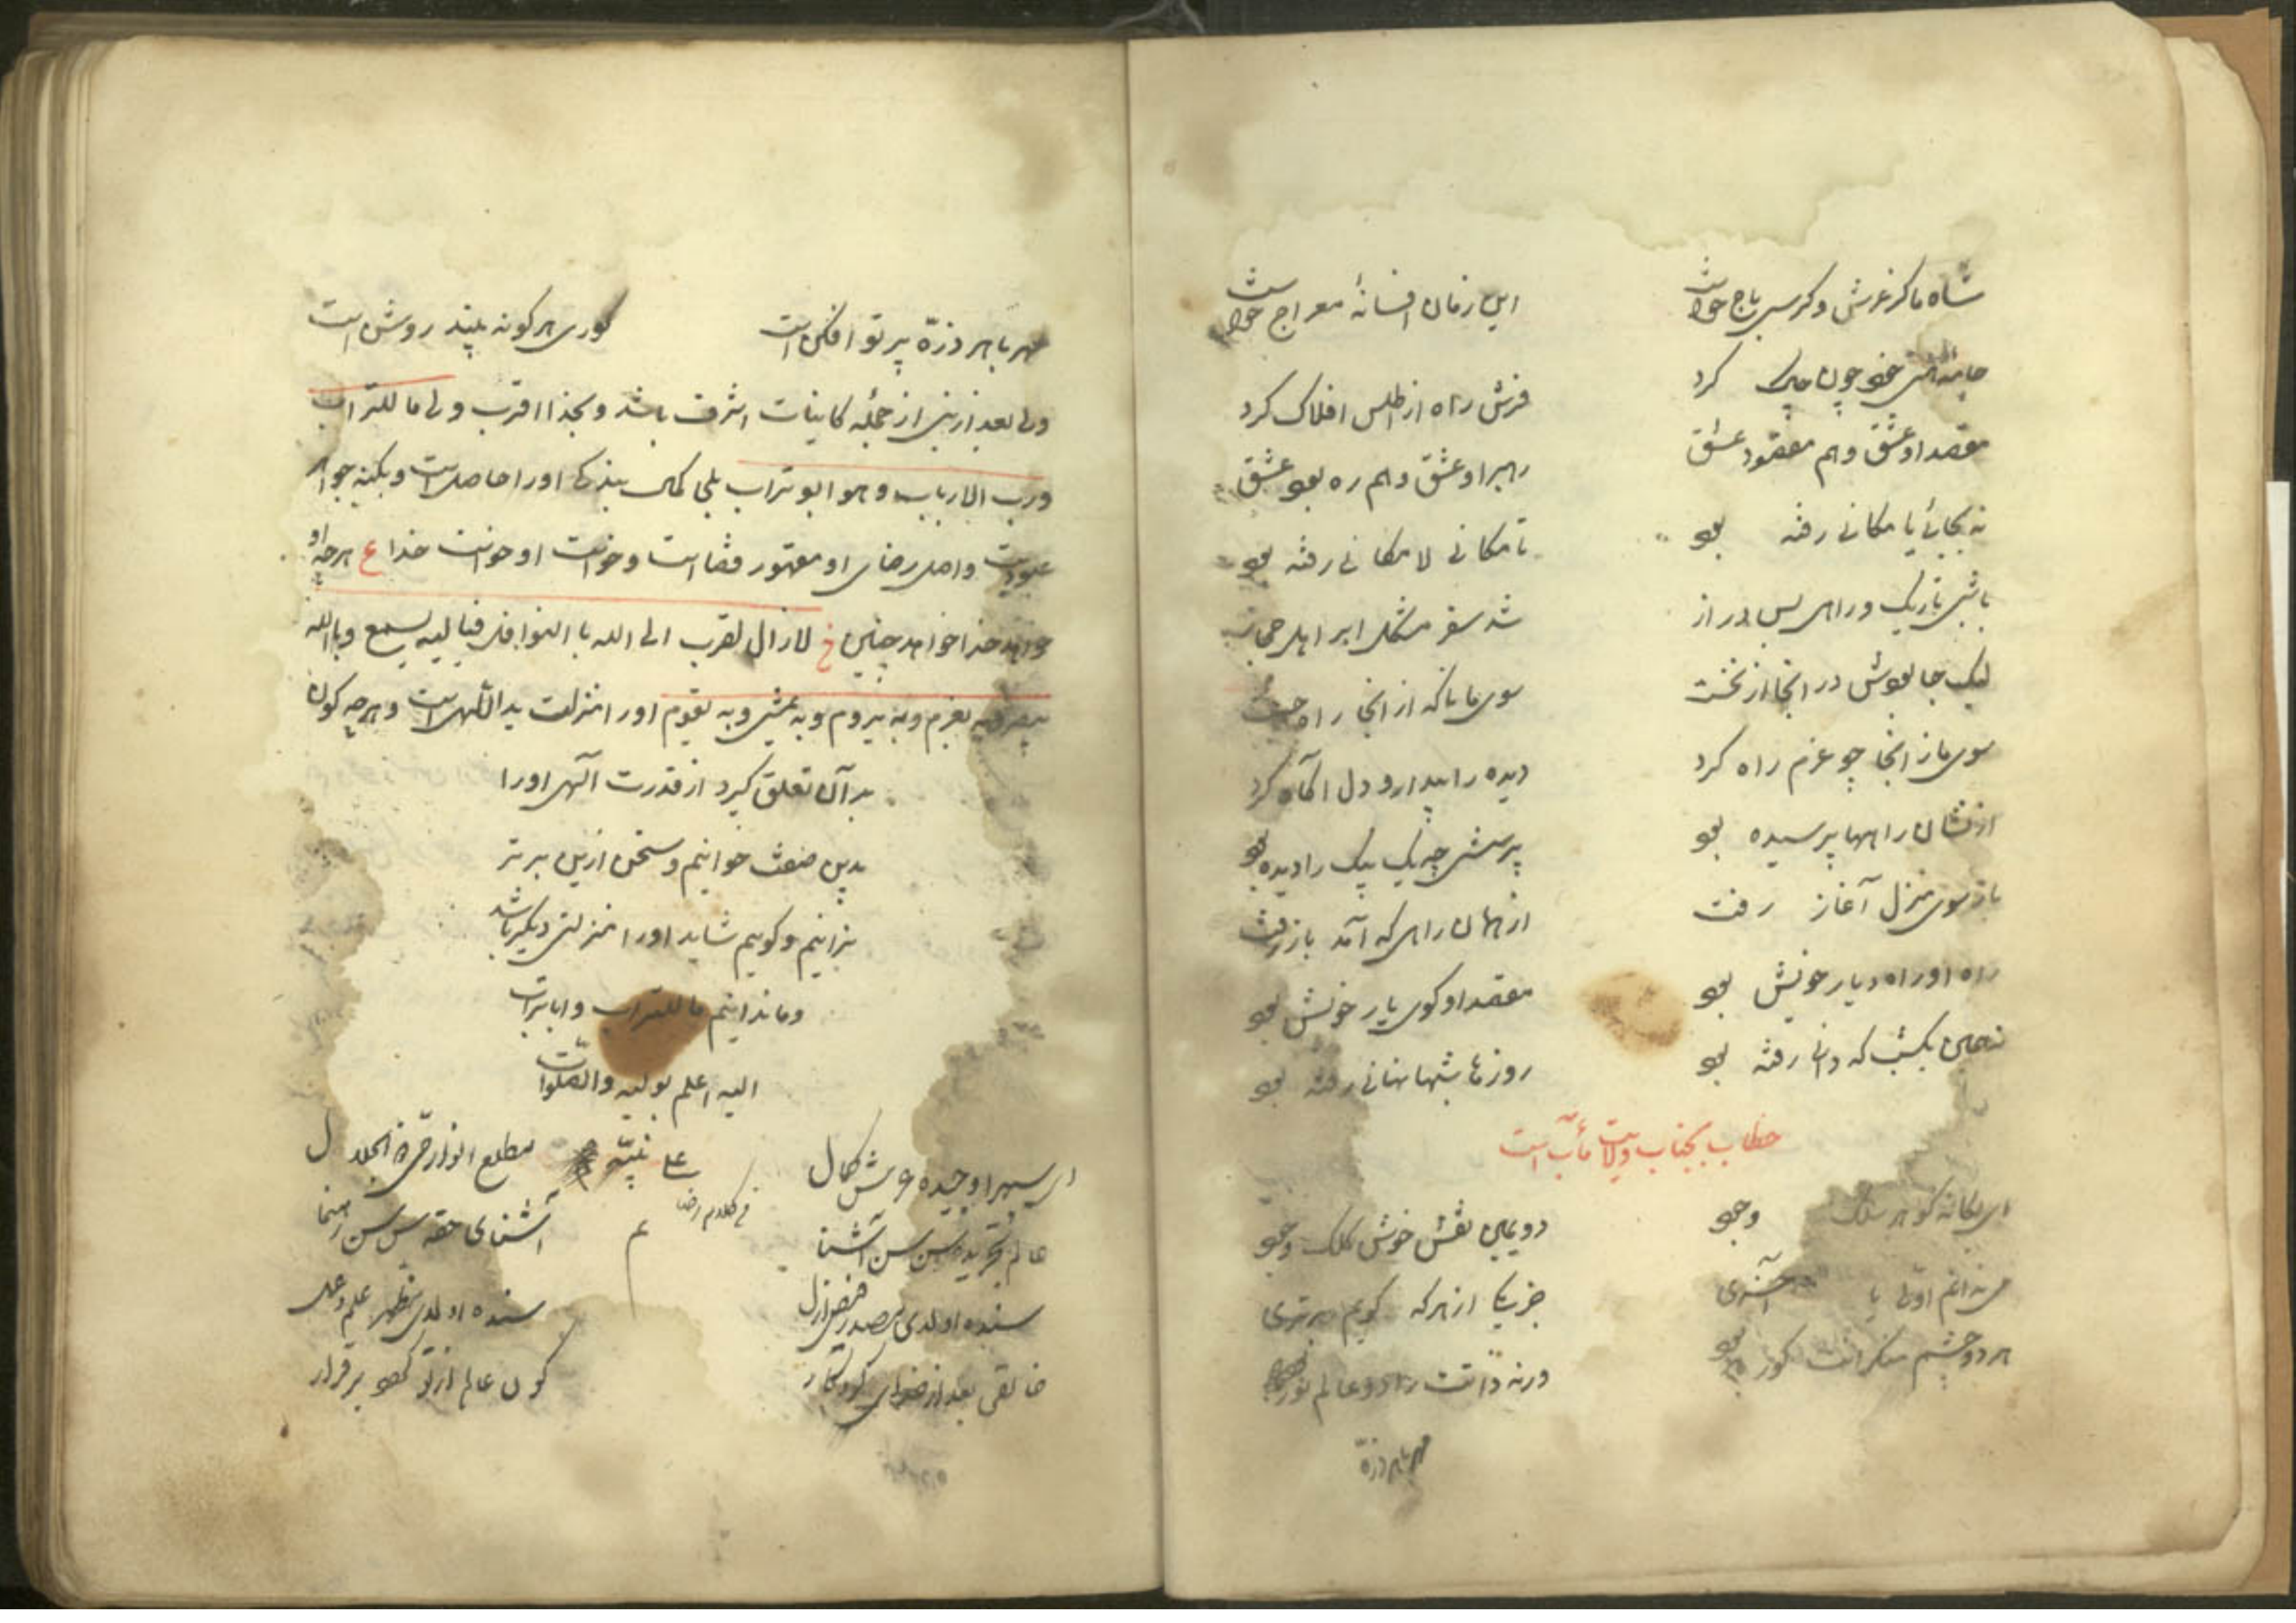 شاه ما کز عرش و کرسی تاج خواست
این زمان افسانهٔ معراج خواست
چون چاک کرد
فرش راه از اطلس افلاک کرد
مقصد او عشق و هم مقصود عشق
رهبر او عشق و هم ره بود عشق
نه بجائی یا مکانی رفته بود
تا مکانی لا مکانی رفته بود
باشبی تاریک و راهی بس دراز
شد سفر مشکل
لیک جا بودش در انجا از نخست
سوی ما تا که از انجا راه جست
سوی ما ز انجا چو عزم راه کرد
دیده را بیدار و دل آگاه کرد
از نشان راهها پرسیده بود
پرسش چه یک بیک را دیده بود
باز سوی منزل آغاز رفت
از همان راهی که آمد باز رفت
راه او راه دیار خویش بود
مقصد او کوی یار خویش بود
نه همین یکشب که دانی رفته بود
روزها شبها نهانی رفته بود
خطاب بجناب ولایت مآب است
ای یگانه کوهر سلک وجود
دویمین نقش خوش کلک وجود
می ندانم اولی یا آخری
جز یکی از هر که کویم برتری
هر دو چشم منکرانت کور بود
ورنه ذاتت را دو عالم نور بود
مهر با هر ذرّه
مهر با هر ذرّه پرتو افکن است
کوری هر کو نه بیند روشن است
ولی بعد از نبی از جملهٔ کاینات اشرف باشد و بخدا اقرب ولی ما للتراب
ورب الارباب وهو ابو تراب بلی کمال بندکی او را حاصل است و بکنه جواهر
عبودیت واصل رضای او مقهور قضاست و خواست او خواست خدا ع هرچه او
خواهد خدا خواهد چنین خ لازال تقرب الی الله با النوافل فبا لیه یسمع وبا الله
یبصر وبه یعزم وبه یروم وبه یمشی وبه یقوم او را منزلت ید اللهی است و هرچه کون
بدآن تعلق کیرد از قدرت آلهی او را
بدین صفت خوانیم و سخن ازین برتر
نرانیم و کوییم شاید او را منزلتی دیکر باشد
وما ندانیم ما للتراب و ابا تراب
الیه اعلم بولیه والصلوات
علی نبیّه
فی کلام رضا
م
ای سپهر اوجیده عرش کمال
مطلع انوار حق ذو الجلال
عالم تجریده سن سن آشنا
آشنای حقه سن سن رهنما
سنده اولدی مصدر فیض ازل
سنده اولدی مظهر علم و عمل
خالقی بعد از خدای کردکار
کون عالم از تو کشته برقرار